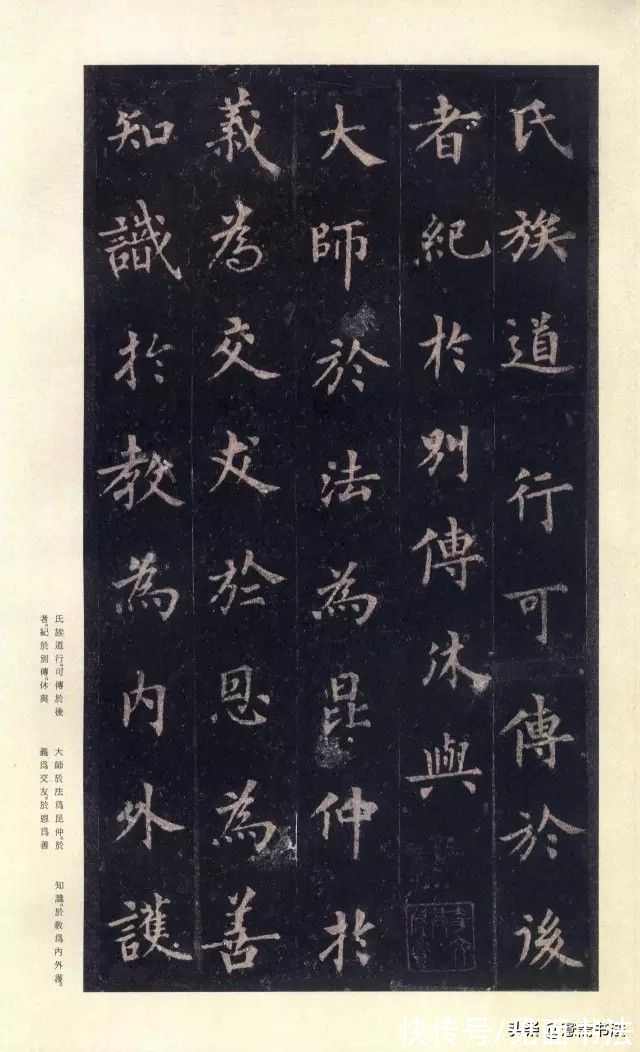 氏族道行可傳於後
者紀於別傳休與
大師於法為昆仲於
義為交友於恩為善
知識於教為內外護
氏族道行。可傳於後
者。紀於別傳。休與
大師於法爲昆仲、於
義爲交友。於恩爲善
知識。於教爲內外護。